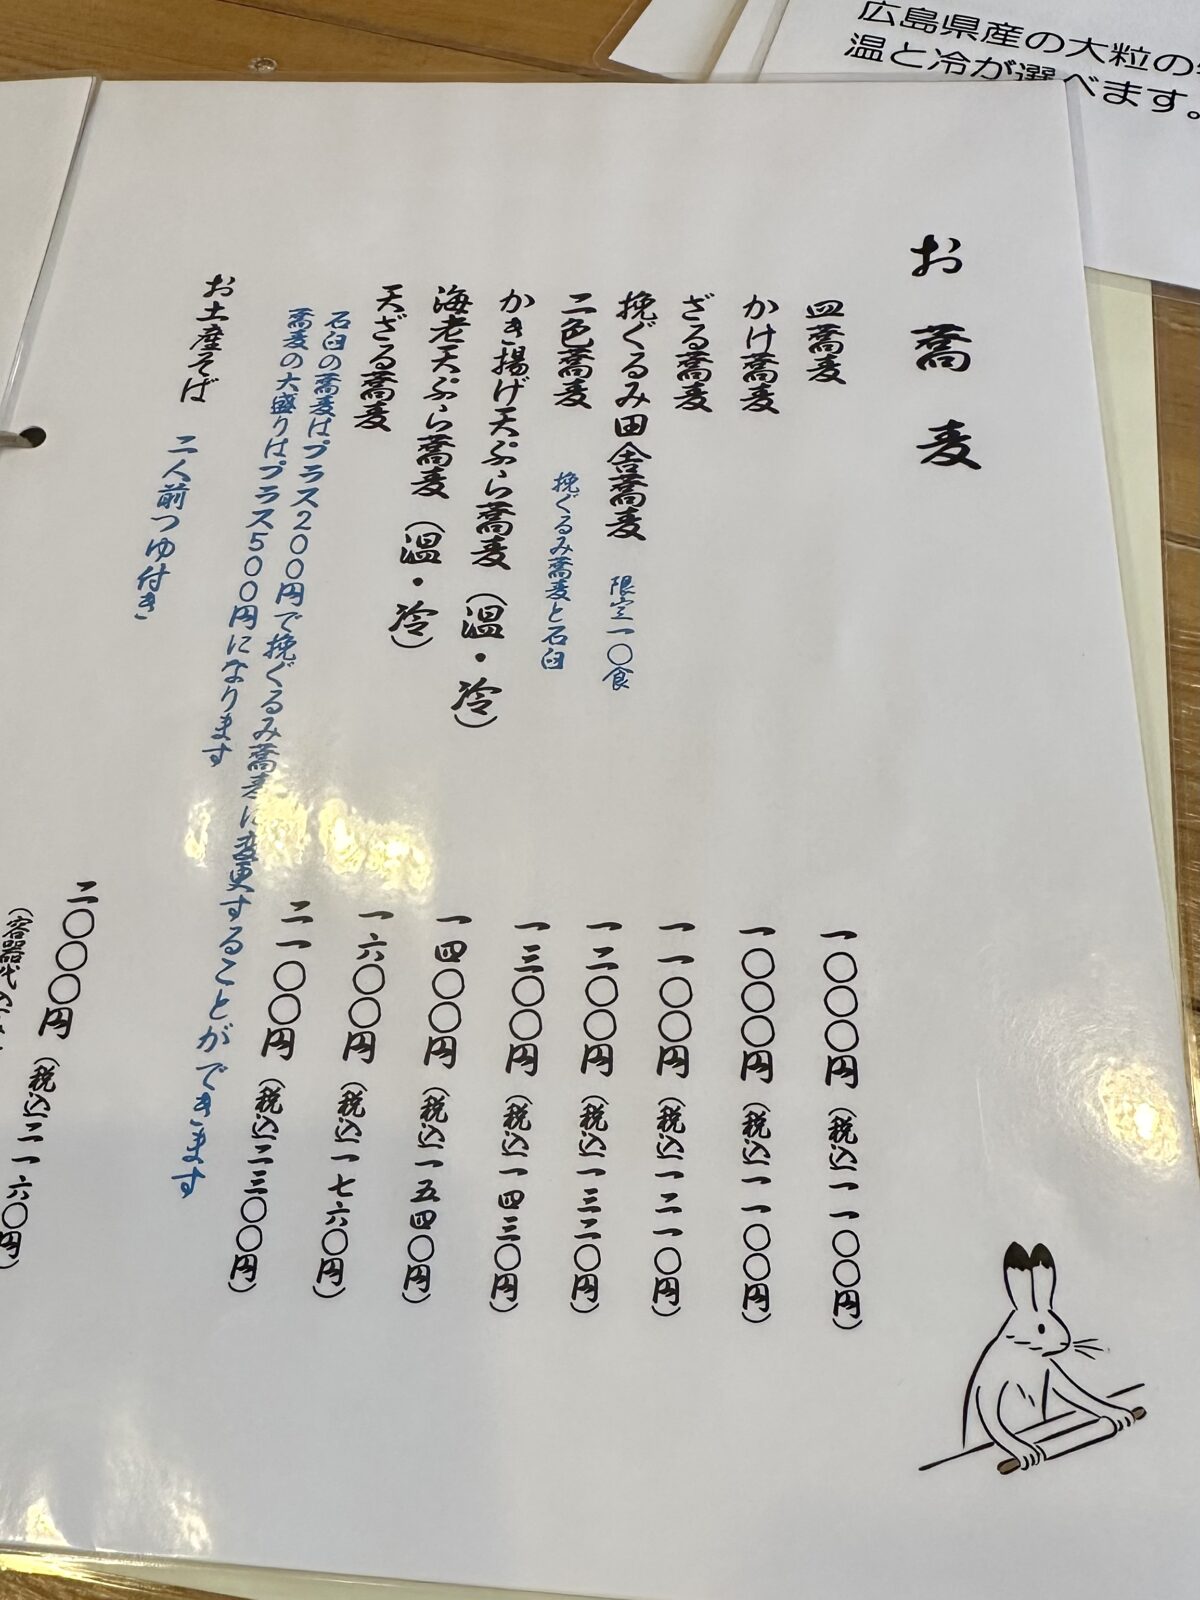 広島県産の大粒の
温と冷が選べます。
お蕎麦
皿蕎麦 一〇〇〇円 (税込一一〇〇円)
かけ蕎麦 一〇〇〇円 (税込一一〇〇円)
ざる蕎麦 一一〇〇円 (税込一二一〇円)
挽ぐるみ田舎蕎麦 限定一〇食 一二〇〇円 (税込一三二〇円)
二色蕎麦 挽ぐるみ蕎麦と石臼 一三〇〇円 (税込一四三〇円)
かき揚げ天ぷら蕎麦 (温・冷) 一四〇〇円 (税込一五四〇円)
海老天ぷら蕎麦 (温・冷) 一六〇〇円 (税込一七六〇円)
天ざる蕎麦 二一〇〇円 (税込二三〇〇円)
石臼の蕎麦はプラス200円で挽ぐるみ蕎麦に変更することができます
蕎麦の大盛りはプラス500円になります
お土産そば 二人前つゆ付き 二〇〇〇円 (税込二一六〇円)
(容器代